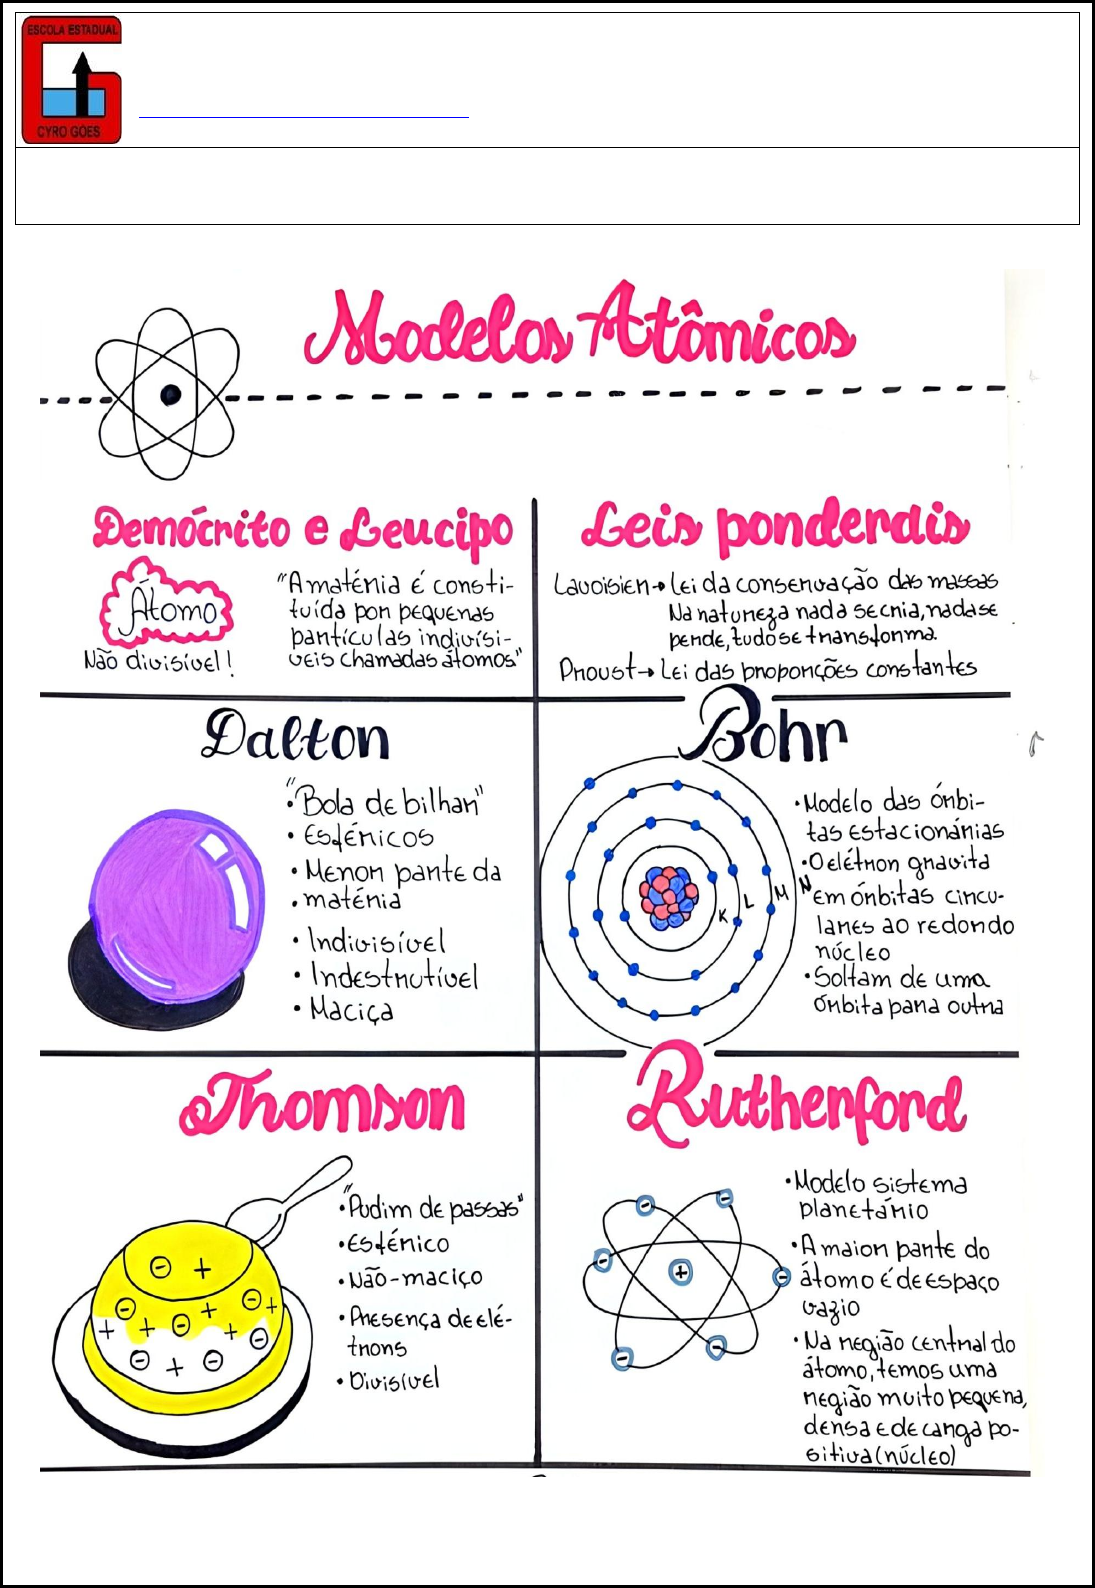 ESCOLA ESTADUAL
CYRO GÓES
Modelos Atômicos
Demócrito e Leucipo
Átomo
Não divisível!
"A matéria é consti-
tuída por pequenas
partículas indivisí-
veis chamadas átomos"
Leis ponderais
Lavoisier → Lei da conservação das massas
Na natureza nada se cria, nada se
perde, tudo se transforma.
Proust → Lei das proporções constantes
Dalton
• "Bola de bilhar"
• Esféricos
• Menor parte da
• matéria
• Indivisível
• Indestrutível
• Maciça
Bohr
K L M N
• Modelo das órbi-
tas estacionárias
• O elétron gravita
em órbitas circu-
lares ao redondo
núcleo
• Soltam de uma
órbita para outra
Thomson
• "Pudim de passas"
• Esférico
• Não-maciço
• Presença de elé-
trons
• Divisível
Rutherford
• Modelo sistema
planetário
• A maior parte do
átomo é de espaço
vazio
• Na região central do
átomo, temos uma
região muito pequena,
densa e de carga po-
sitiva (núcleo)